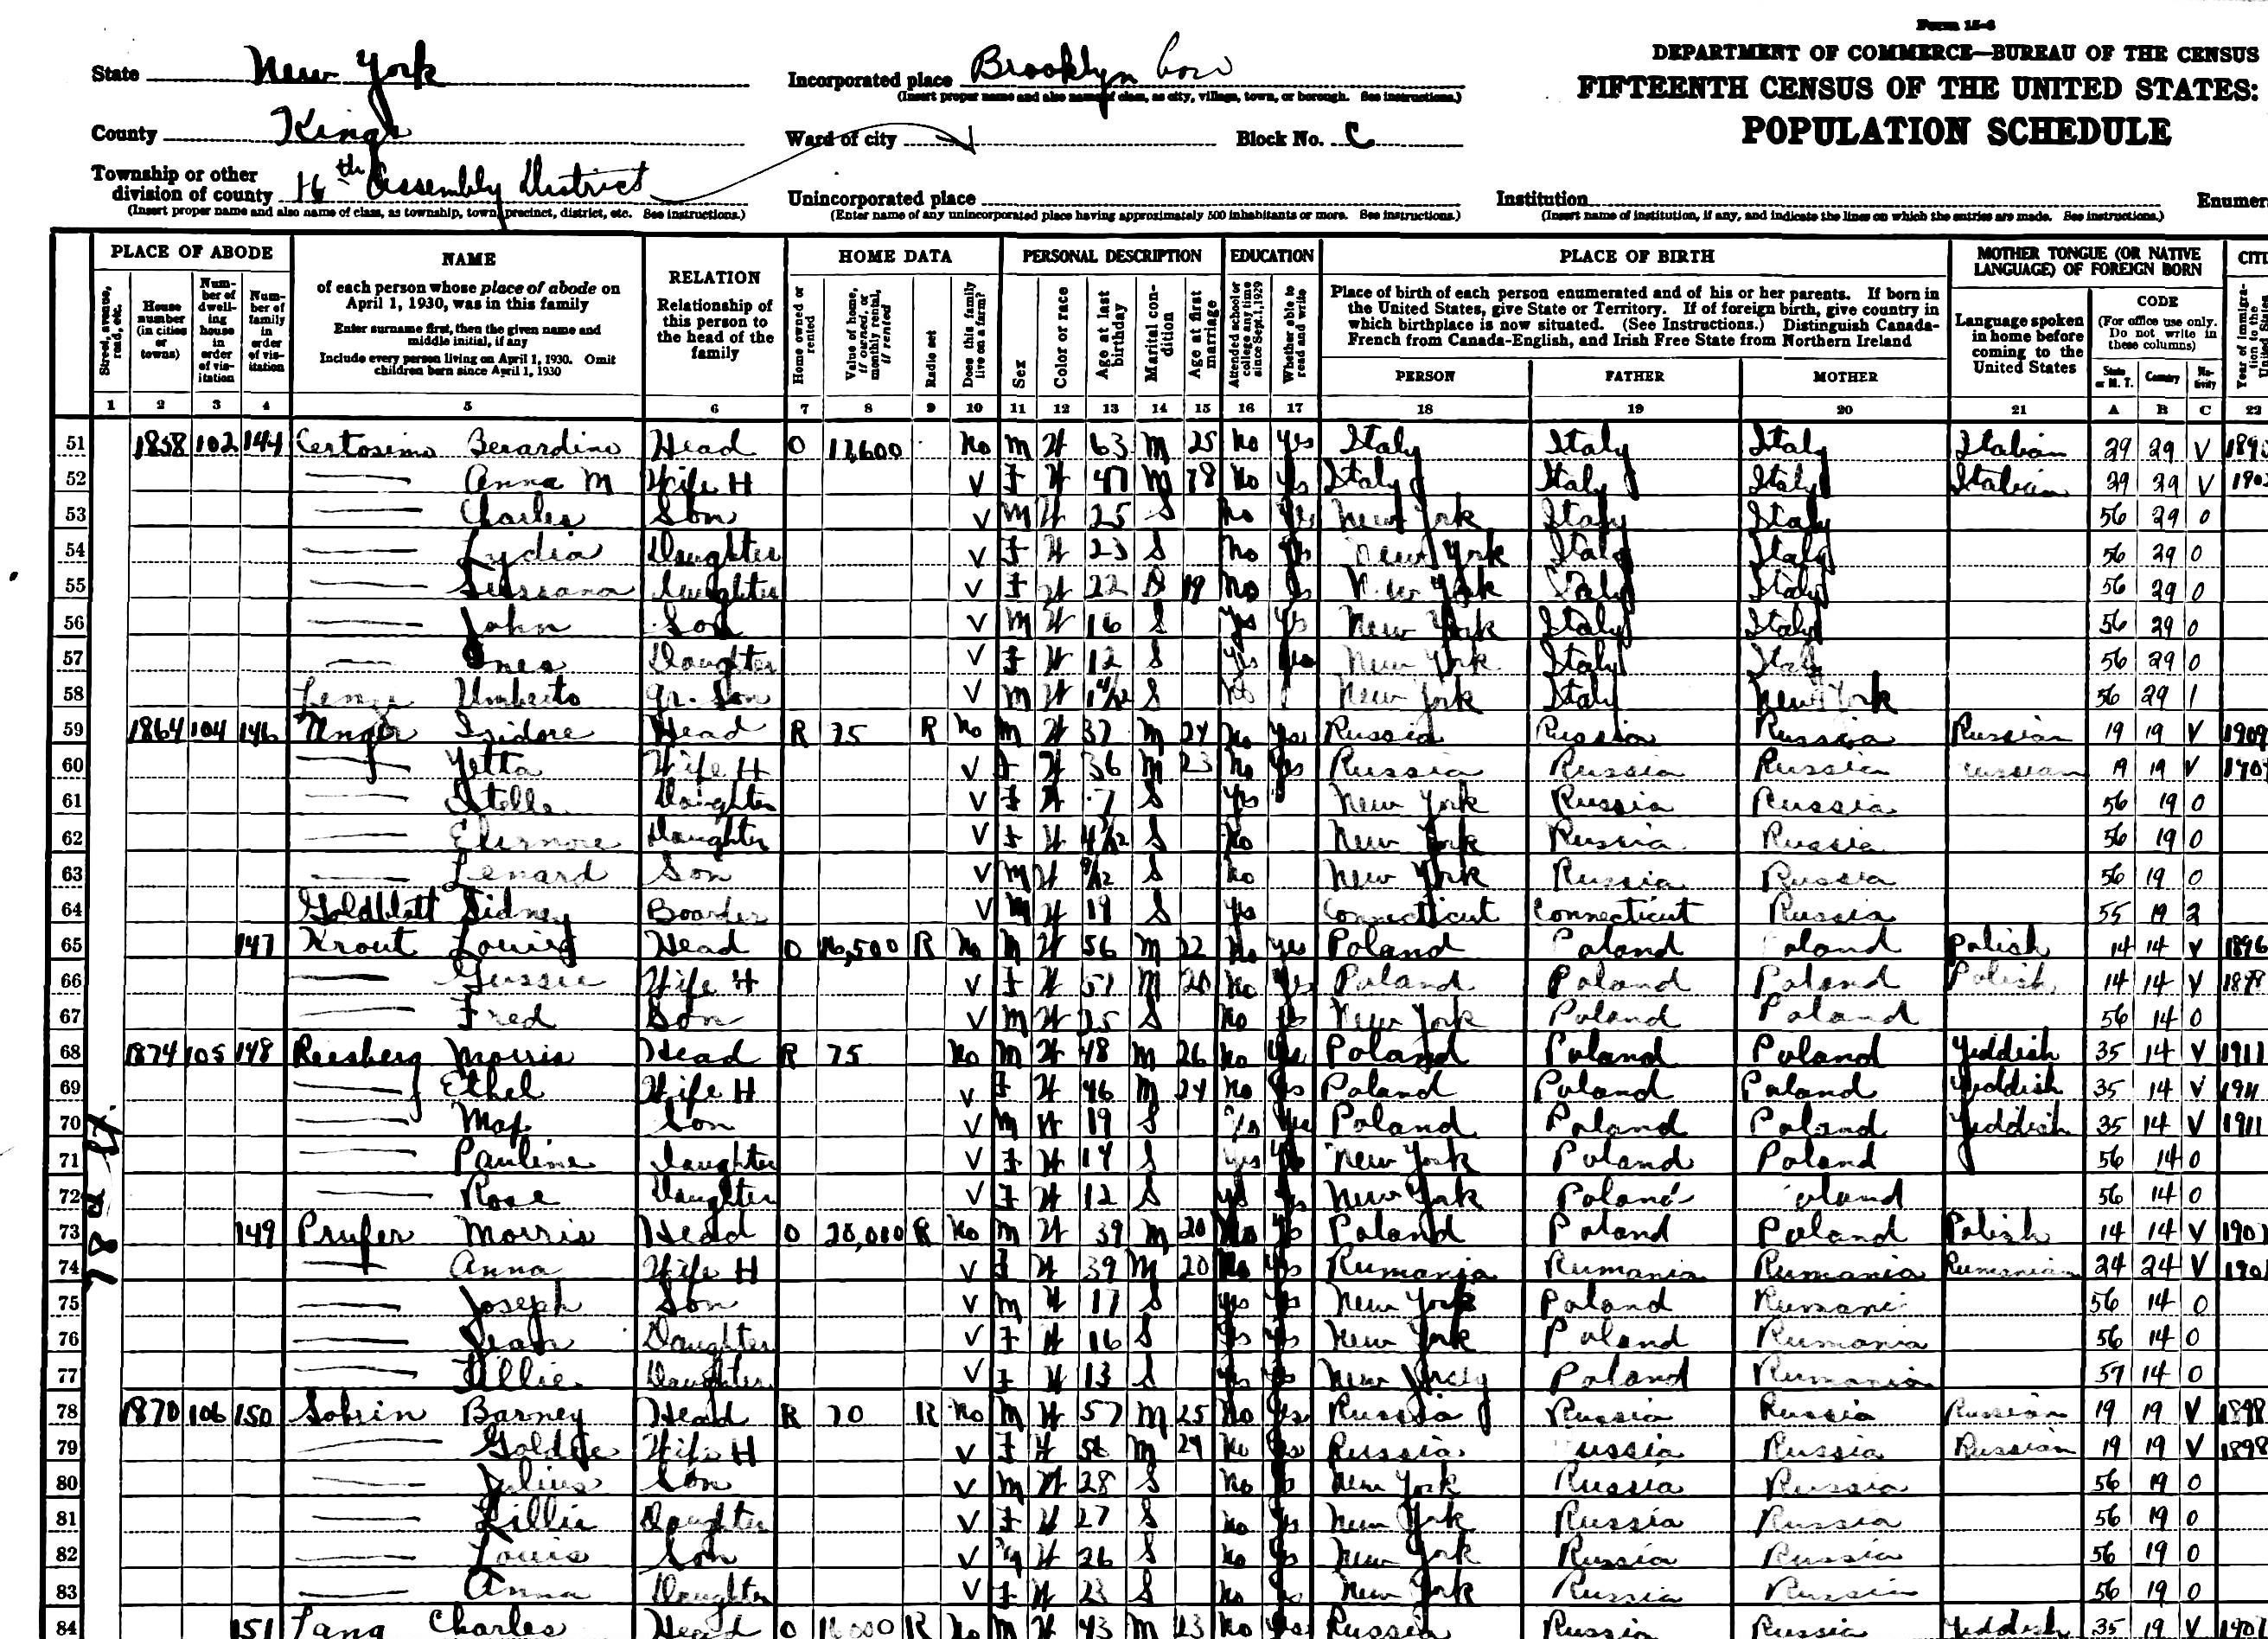 Form 15-6
DEPARTMENT OF COMMERCE—BUREAU OF THE CENSUS
FIFTEENTH CENSUS OF THE UNITED STATES:
POPULATION SCHEDULE
State New York
Incorporated place Brooklyn
(Insert proper name and also name of class, as city, village, town, or borough. See instructions.)
County Kings
Ward of city Block No. C
Township or other
division of county 16th Assembly District
(Insert proper name and also name of class, as township, town, precinct, district, etc. See instructions.)
Unincorporated place
(Enter name of any unincorporated place having approximately 500 inhabitants or more. See instructions.)
Institution
(Insert name of institution, if any, and indicate the lines on which the entries are made. See instructions.)
Enumer
PLACE OF ABODE
Street, avenue, road, etc.
House number (in cities or towns)
Num-ber of dwell-ing house in order of vis-itation
Num-ber of family in order of vis-itation
NAME
of each person whose place of abode on
April 1, 1930, was in this family
Enter surname first, then the given name and
middle initial, if any
Include every person living on April 1, 1930. Omit
children born since April 1, 1930
RELATION
Relationship of
this person to
the head of the
family
HOME DATA
Home owned or rented
Value of home, if owned, or monthly rental, if rented
Radio set
Does this family live on a farm?
PERSONAL DESCRIPTION
Sex
Color or race
Age at last birthday
Marital con-dition
Age at first marriage
EDUCATION
Attended school or college any time since Sept. 1, 1929
Whether able to read and write
PLACE OF BIRTH
Place of birth of each person enumerated and of his or her parents. If born in
the United States, give State or Territory. If of foreign birth, give country in
which birthplace is now situated. (See Instructions.) Distinguish Canada-
French from Canada-English, and Irish Free State from Northern Ireland
PERSON FATHER MOTHER
MOTHER TONGUE (OR NATIVE
LANGUAGE) OF FOREIGN BORN
Language spoken
in home before
coming to the
United States
CODE
(For office use only.
Do not write in
these columns)
State or M. T. Country Na-tivity
CITI
Year of immigra-tion to the United States
1 2 3 4 5 6 7 8 9 10 11 12 13 14 15 16 17 18 19 20 21 A B C 22
51 1858 102 144 Certosimo Berardino Head O No M W 63 M 25 No Yes Italy Italy Italy Italian 29 29 V
52 Anna M Wife H V F W 47 M 18 No Yes Italy Italy Italy Italian 29 29 V
53 Charles Son V M W 25 S No Yes New York Italy Italy 56 29 0
54 Lydia Daughter V F W 23 S No Yes New York Italy Italy 56 29 0
55 Daughter V F W 22 D 19 No Yes New York Italy Italy 56 29 0
56 John Son V M W 16 S Yes Yes New York Italy Italy 56 29 0
57 Ines Daughter V F W 12 S Yes Yes New York Italy Italy 56 29 0
58 Umberto Gr. Son V M W 1 4/12 S No New York Italy New York 56 29 1
59 1864 104 146 Unger Isidore Head R 75 R No M W 37 M 24 No Yes Russia Russia Russia Russian 19 19 V 1909
60 Yetta Wife H V F W 36 M 23 No Yes Russia Russia Russia Russian 19 19 V
61 Stella Daughter V F W 7 S Yes New York Russia Russia 56 19 0
62 Eleanore Daughter V F W S No New York Russia Russia 56 19 0
63 Lenard Son V M W 9/12 S No New York Russia Russia 56 19 0
64 Goldblatt Sidney Boarder V M W 19 S Yes Connecticut Connecticut Russia 55 19 2
65 147 Krout Louis Head O 16,500 R No M W 56 M 22 No Yes Poland Poland Poland Polish 14 14 V 1896
66 Gussie Wife H V F W 51 M 20 No Yes Poland Poland Poland Polish 14 14 V
67 Fred Son V M W 25 S No Yes New York Poland Poland 56 14 0
68 1874 105 148 Reesberg Morris Head R 75 No M W 48 M 26 No Yes Poland Poland Poland Yiddish 35 14 V 1911
69 Ethel Wife H V F W 46 M 24 No Yes Poland Poland Poland Yiddish 35 14 V 1911
70 Max Son V M W 19 S Yes Yes Poland Poland Poland Yiddish 35 14 V 1911
71 Pauline Daughter V F W 14 S Yes Yes New York Poland Poland 56 14 0
72 Rose Daughter V F W 12 S Yes Yes New York Poland Poland 56 14 0
73 149 Prufer Morris Head O 20,000 R No M W 39 M 20 No Yes Poland Poland Poland Polish 14 14 V 1901
74 Anna Wife H V F W 39 M 20 No Yes Rumania Rumania Rumania Rumanian 24 24 V 190
75 Joseph Son V M W 17 S Yes Yes New York Poland Rumania 56 14 0
76 Jean Daughter V F W 16 S Yes Yes New York Poland Rumania 56 14 0
77 Tillie Daughter V F W 13 S Yes Yes New Jersey Poland Rumania 57 14 0
78 1870 106 150 Sobrin Barney Head R 70 R No M W 57 M 25 No Yes Russia Russia Russia Russian 19 19 V 1898
79 Goldie Wife H V F W 56 M 24 No Yes Russia Russia Russia Russian 19 19 V 1898
80 Julius Son V M W 28 S No Yes New York Russia Russia 56 19 0
81 Lillie Daughter V F W 27 S No Yes New York Russia Russia 56 19 0
82 Louis Son V M W 26 S No Yes New York Russia Russia 56 19 0
83 Anna Daughter V F W 23 S No Yes New York Russia Russia 56 19 0
84 151 Lang Charles Head O R No M W 43 M 23 No Yes Russia Russia Russia Yiddish 35 19 V
78 St.